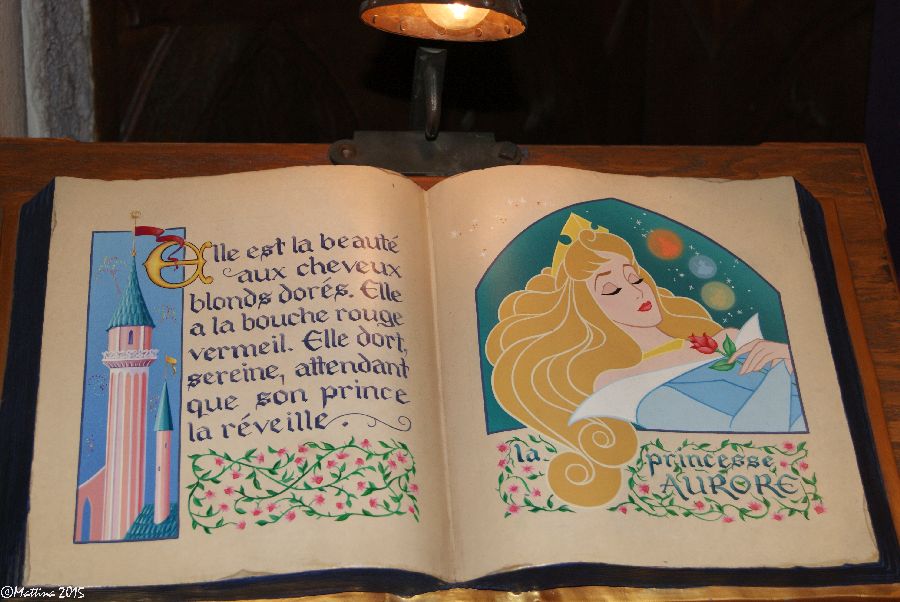 Elle est la beauté
aux cheveux
blonds dorés. Elle
a la bouche rouge
vermeil. Elle dort,
sereine, attendant
que son prince
la réveille.
la princesse
AURORE
©Mattina 2015